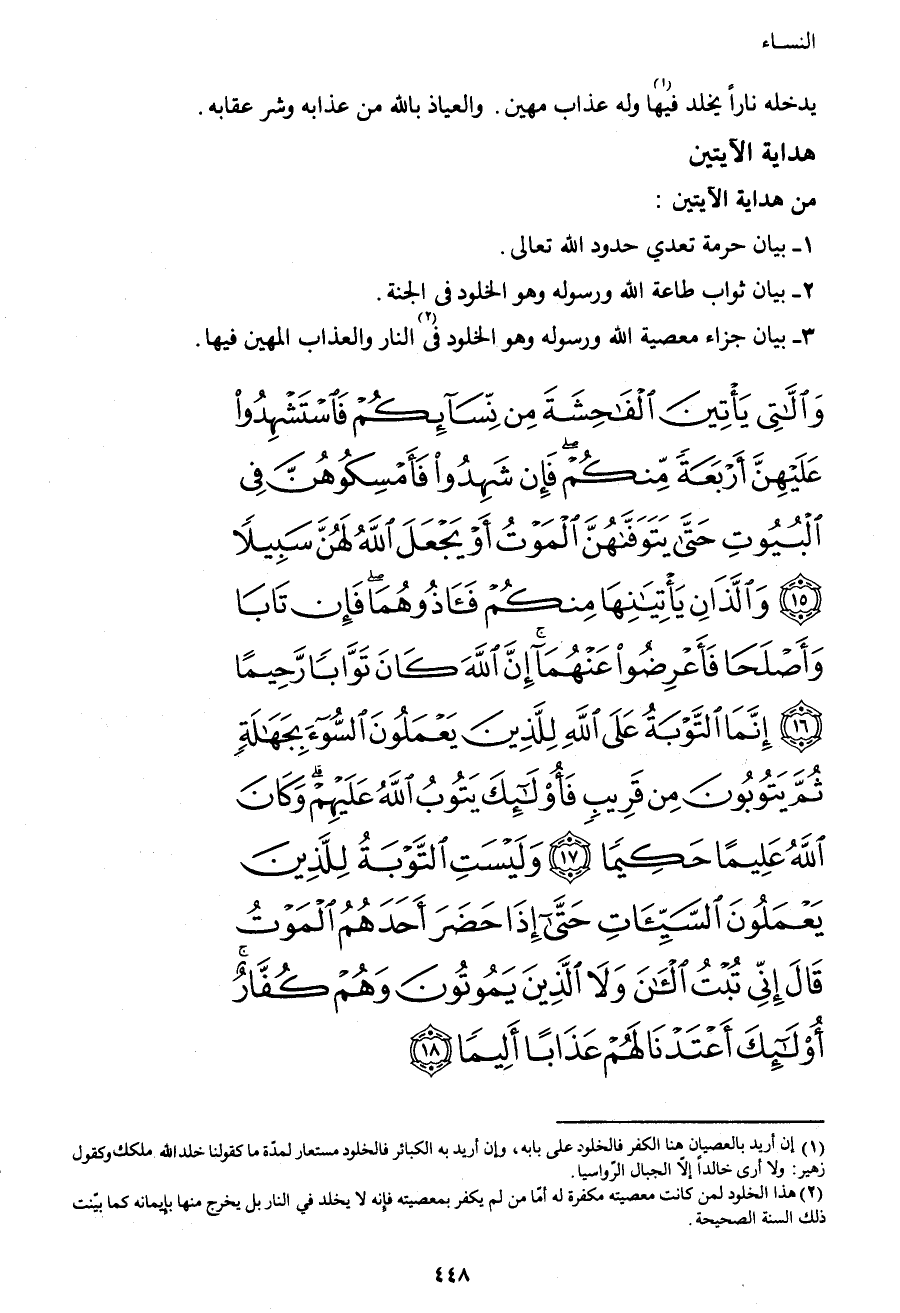 النســاء
يدخله ناراً يخلد فيها(١) وله عذاب مهين. والعياذ بالله من عذابه وشر عقابه.
هداية الآيتين
من هداية الآيتين :
١ـ بيان حرمة تعدي حدود الله تعالى.
٢ـ بيان ثواب طاعة الله ورسوله وهو الخلود فى الجنة.
٣ـ بيان جزاء معصية الله ورسوله وهو الخلود فى(٢) النار والعذاب المهين فيها.
وَٱلَّٰتِى يَأۡتِينَ ٱلۡفَٰحِشَةَ مِن نِّسَآئِكُمۡ فَٱسۡتَشۡهِدُوا۟
عَلَيۡهِنَّ أَرۡبَعَةً مِّنكُمۡۖ فَإِن شَهِدُوا۟ فَأَمۡسِكُوهُنَّ فِى
ٱلۡبُيُوتِ حَتَّىٰ يَتَوَفَّىٰهُنَّ ٱلۡمَوۡتُ أَوۡ يَجۡعَلَ ٱللَّهُ لَهُنَّ سَبِيلًا
١٥ وَٱلَّذَانِ يَأۡتِيَٰنِهَا مِنكُمۡ فَـَٔاذُوهُمَاۖ فَإِن تَابَا
وَأَصۡلَحَا فَأَعۡرِضُوا۟ عَنۡهُمَآۚ إِنَّ ٱللَّهَ كَانَ تَوَّابًا رَّحِيمًا
١٦ إِنَّمَا ٱلتَّوۡبَةُ عَلَى ٱللَّهِ لِلَّذِينَ يَعۡمَلُونَ ٱلسُّوٓءَ بِجَهَٰلَةٍ
ثُمَّ يَتُوبُونَ مِن قَرِيبٍ فَأُو۟لَٰٓئِكَ يَتُوبُ ٱللَّهُ عَلَيۡهِمۡۗ وَكَانَ
ٱللَّهُ عَلِيمًا حَكِيمًا ١٧ وَلَيۡسَتِ ٱلتَّوۡبَةُ لِلَّذِينَ
يَعۡمَلُونَ ٱلسَّيِّـَٔاتِ حَتَّىٰٓ إِذَا حَضَرَ أَحَدَهُمُ ٱلۡمَوۡتُ
قَالَ إِنِّى تُبۡتُ ٱلۡـَٰٔنَ وَلَا ٱلَّذِينَ يَمُوتُونَ وَهُمۡ كُفَّارٌۚ
أُو۟لَٰٓئِكَ أَعۡتَدۡنَا لَهُمۡ عَذَابًا أَلِيمًا ١٨
(١) إن أريد بالعصيان هنا الكفر فالخلود على بابه، وإن أريد به الكبائر فالخلود مستعار لمدّة ما كقولنا خلد الله ملكك وكقول
زهير: ولا أرى خالداً إلّا الجبال الرّواسيا.
(٢) هذا الخلود لمن كانت معصيته مكفرة له أمّا من لم يكفر بمعصيته فإنه لا يخلد في النار بل يخرج منها بإيمانه كما بيّنت
ذلك السنة الصحيحة.
٤٤٨